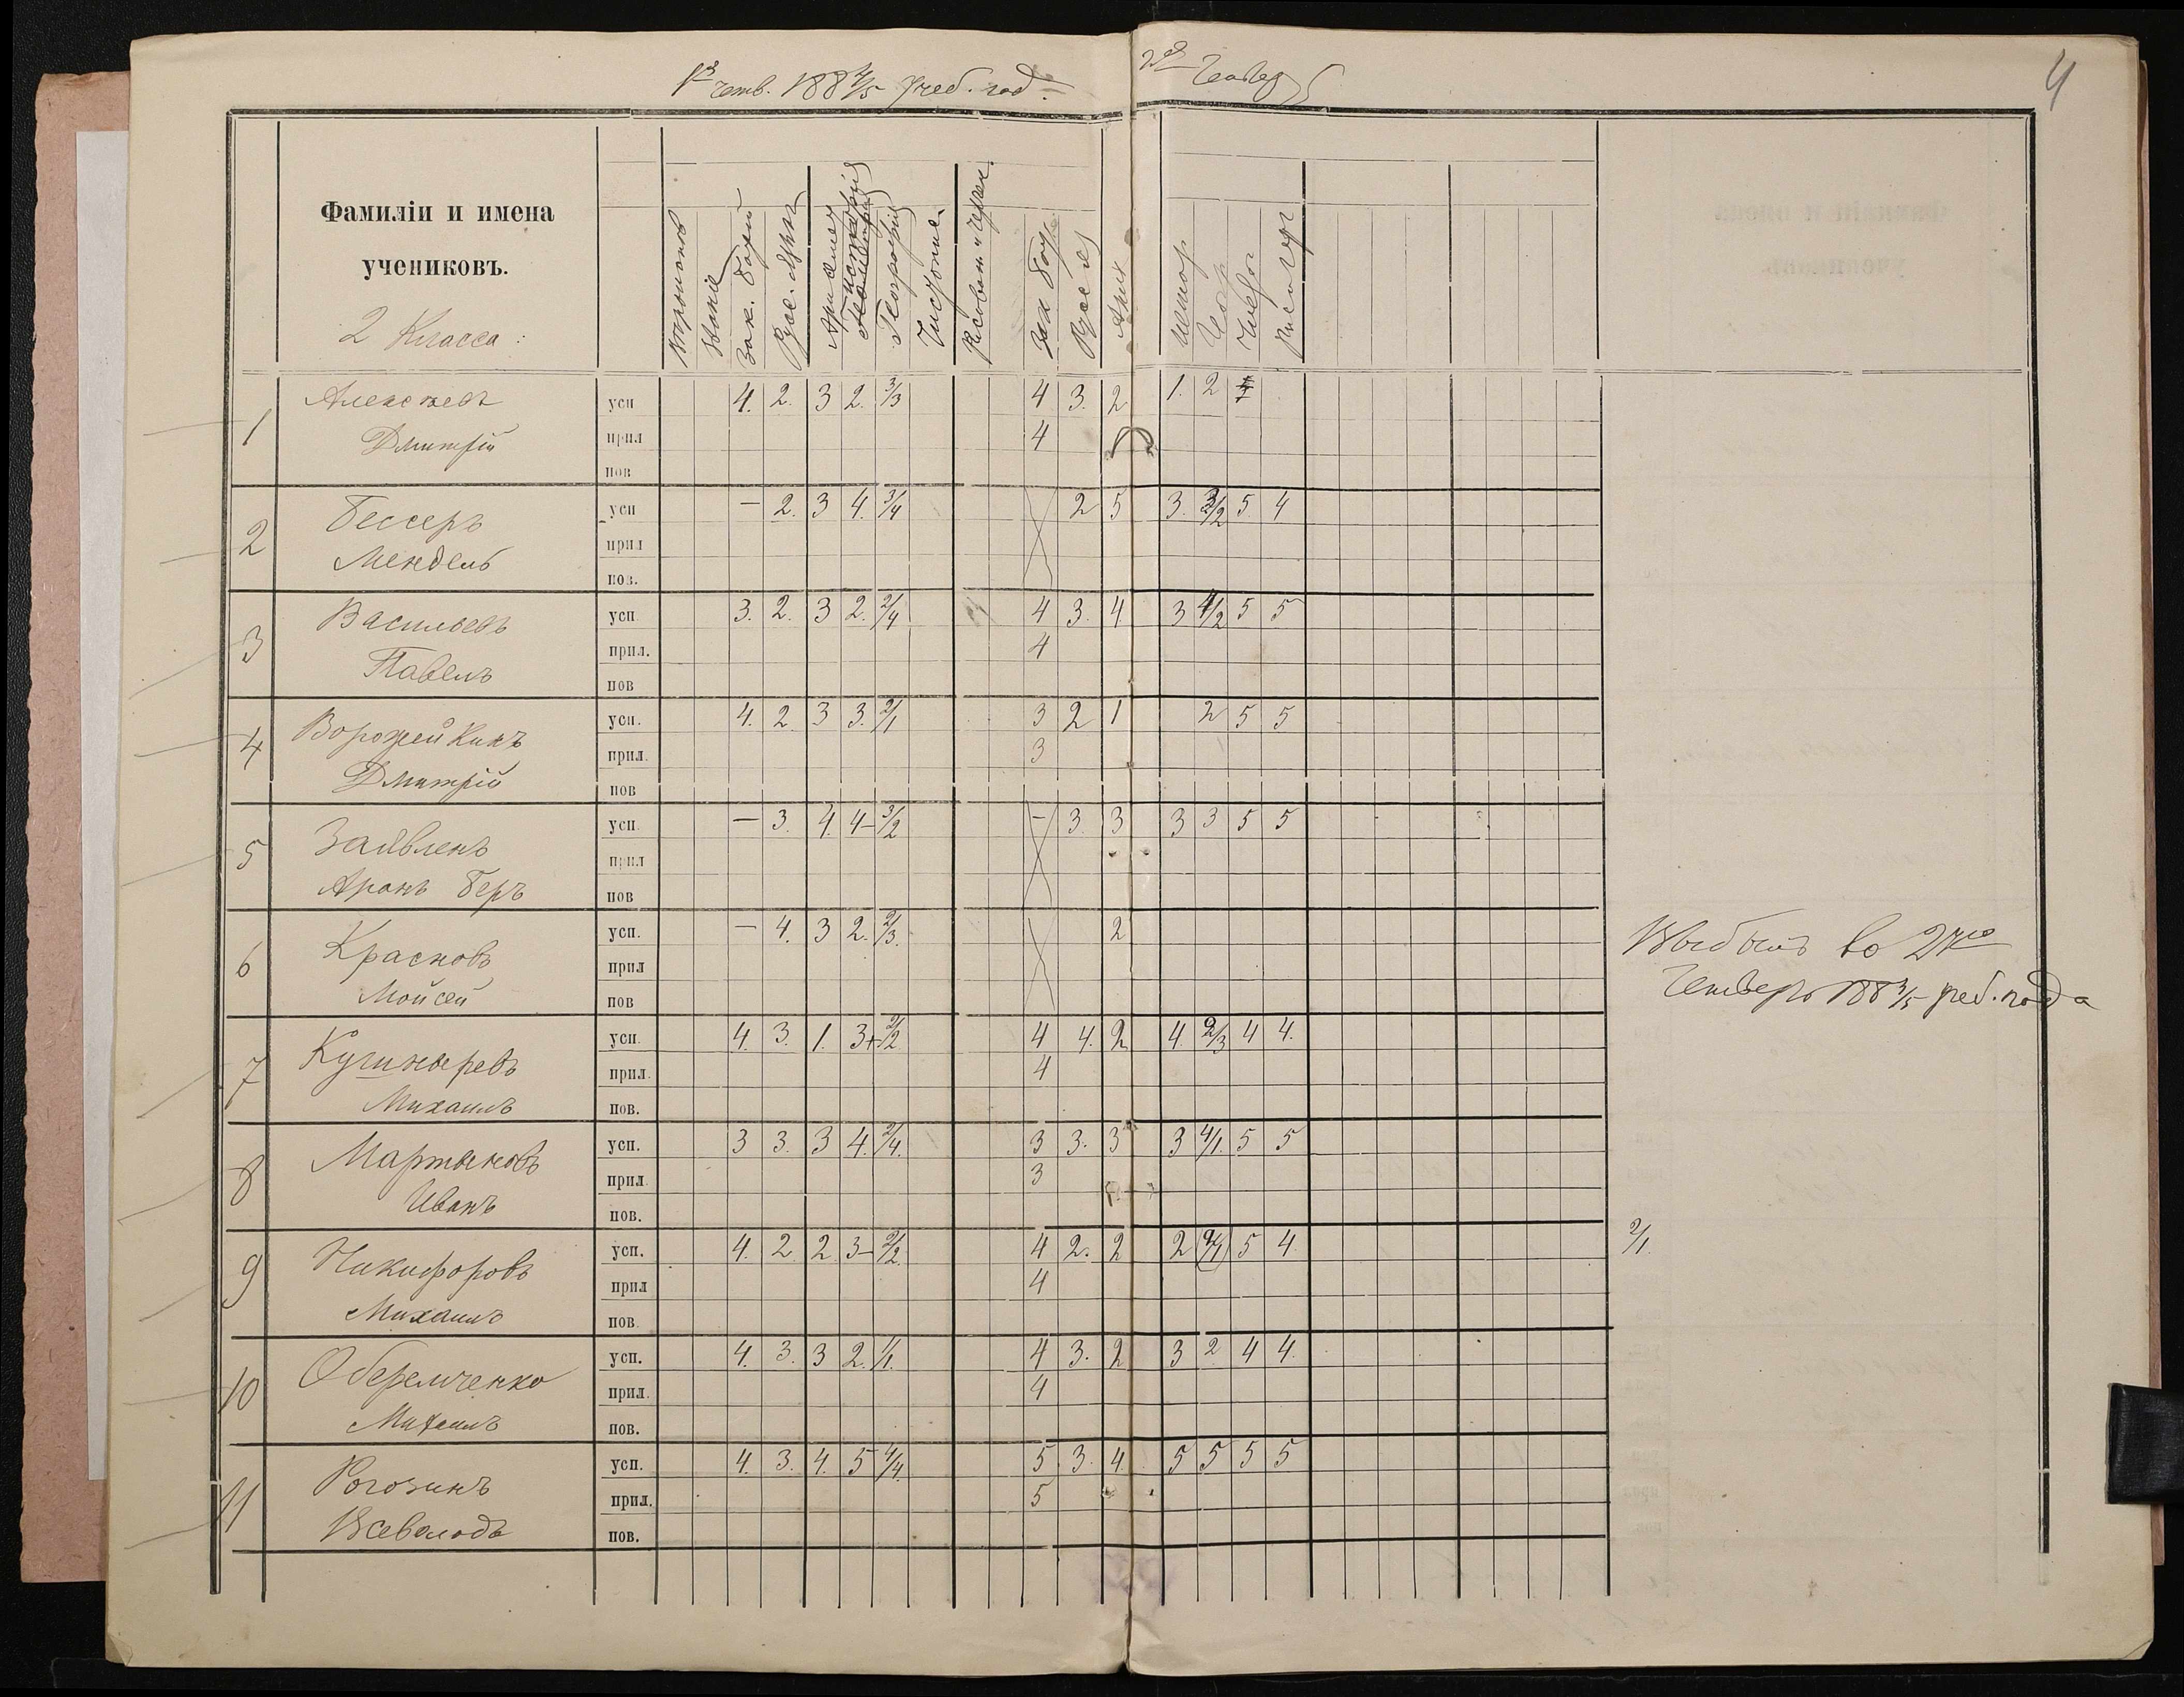 1я четв. 188 4/5 учеб. год.
2я Четверть
4
Фамиліи и имена
учениковъ.
2 Класса:
Зак. Божій
Рус. языкъ
Арифмет
Исторія
Географія
Чистопис.
Рисован. и Черчен.
Зак Бож
Русск
Ариѳ
Истор
Геогр
Чистоп
1 Алексѣевъ усп 4. 2. 3 2. 3/3 4 3. 2 1. 2
Дмитрій прил 4
пов
2 Бессеръ усп — 2. 3 4. 3/4 2 5 3. 3/2 5. 4
Мендель прил
пов.
3 Васильевъ усп. 3. 2. 3 2. 2/4 4 3. 4. 3 4/2 5 5
Павелъ прил. 4
пов
4 Ворожейкинъ усп. 4. 2 3 3. 2/1 3 2 1 2 5 5
Дмитрій прил. 3
пов
5 усп. — 3. 4. 4- 3/2 — 3. 3 3 3 5 5
Аронъ Беръ прил
пов
6 Красновъ усп. — 4. 3 2. 2/3. 2
Мойсей прил
пов
Выбылъ во 2ую
Четверть 188 4/5 учеб. года
7 усп. 4. 3. 1. 3+ 2/2 4 4. 2 4. 2/3 4 4.
Михаилъ прил. 4
пов.
8 Мартыновъ усп. 3 3. 3 4. 2/4. 3 3. 3 3 4/1. 5 5
Иванъ прил. 3
пов.
9 Никифоровъ усп. 4. 2 2 3- 2/2. 4 2. 2 2 2/1 5 4. 2/1.
Михаилъ прил 4
пов.
10 Оберемченко усп. 4. 3. 3 2. 1/1. 4 3. 2 3 2 4 4.
Михаилъ прил. 4
пов.
11 Рогозинъ усп. 4. 3. 4. 5 4/4. 5. 3. 4. 5 5 5 5
Всеволодъ прил. 5
пов.